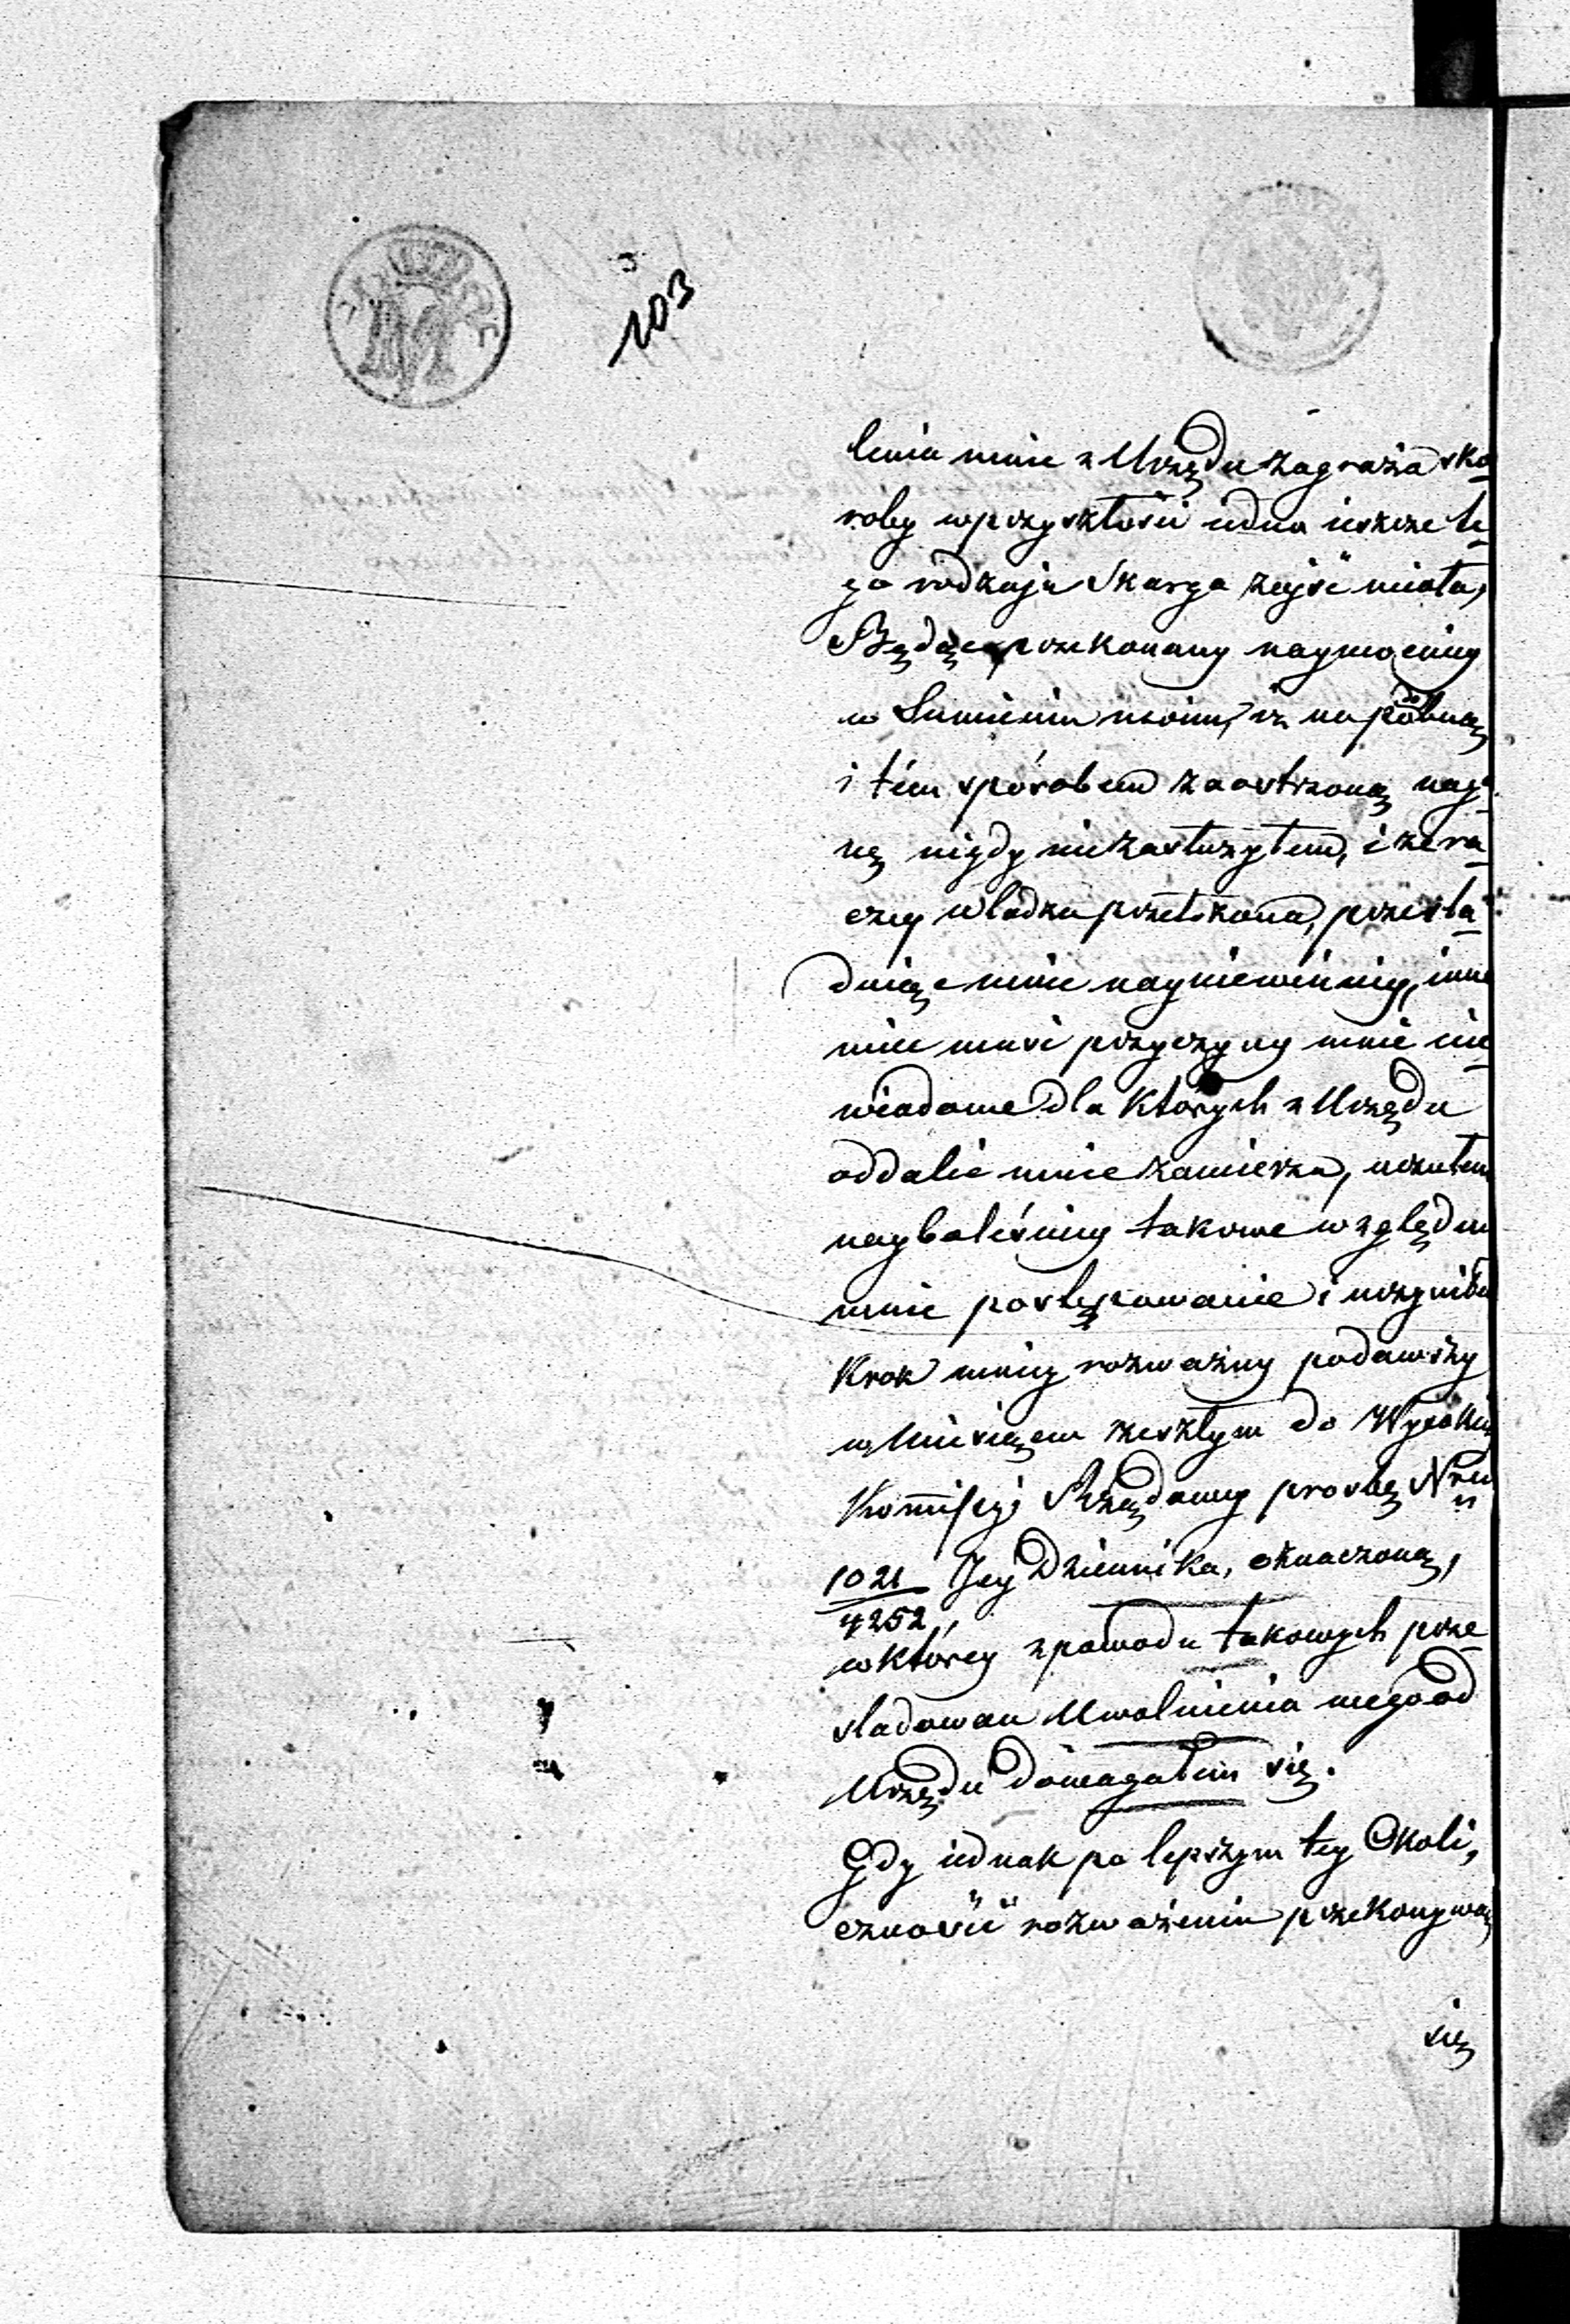 103
lenia mnie z Urzędu zagraża sko-
roby w przyszłości iedna ieszcze te-
go rodzaju Skarga zajść miała,
Będąc przekonany naymocniey
w Sumieniu moim, iż na podobną
i tém sposobem zaostrzoną naga-
nę nigdy niezasłużyłem, i że ra-
czey Władza przełożona, prześla-
dniąc mnie nayniewinniey, inne
mieć musi przyczyny mnie nie-
wiadome dla których z Urzędu
oddalić mnie zamierza, uczułem
nayboleśniey takowe względem
mnie postępowanie i uczyniłem
Krok mniey rozważny podawszy
w Miesiącu zeszłym do Wysokiey
Kommissyi Rządowey prośbę Nrem
1021/4252 Jey Dziennika, oznaczoną,
w którey z powodu takowych prze-
sladowań Uwolnienia mego od
Urzędu domagałem się.
Gdy iednak po lepszym tey Okoli,
czności rozważeniu przekonywam
się